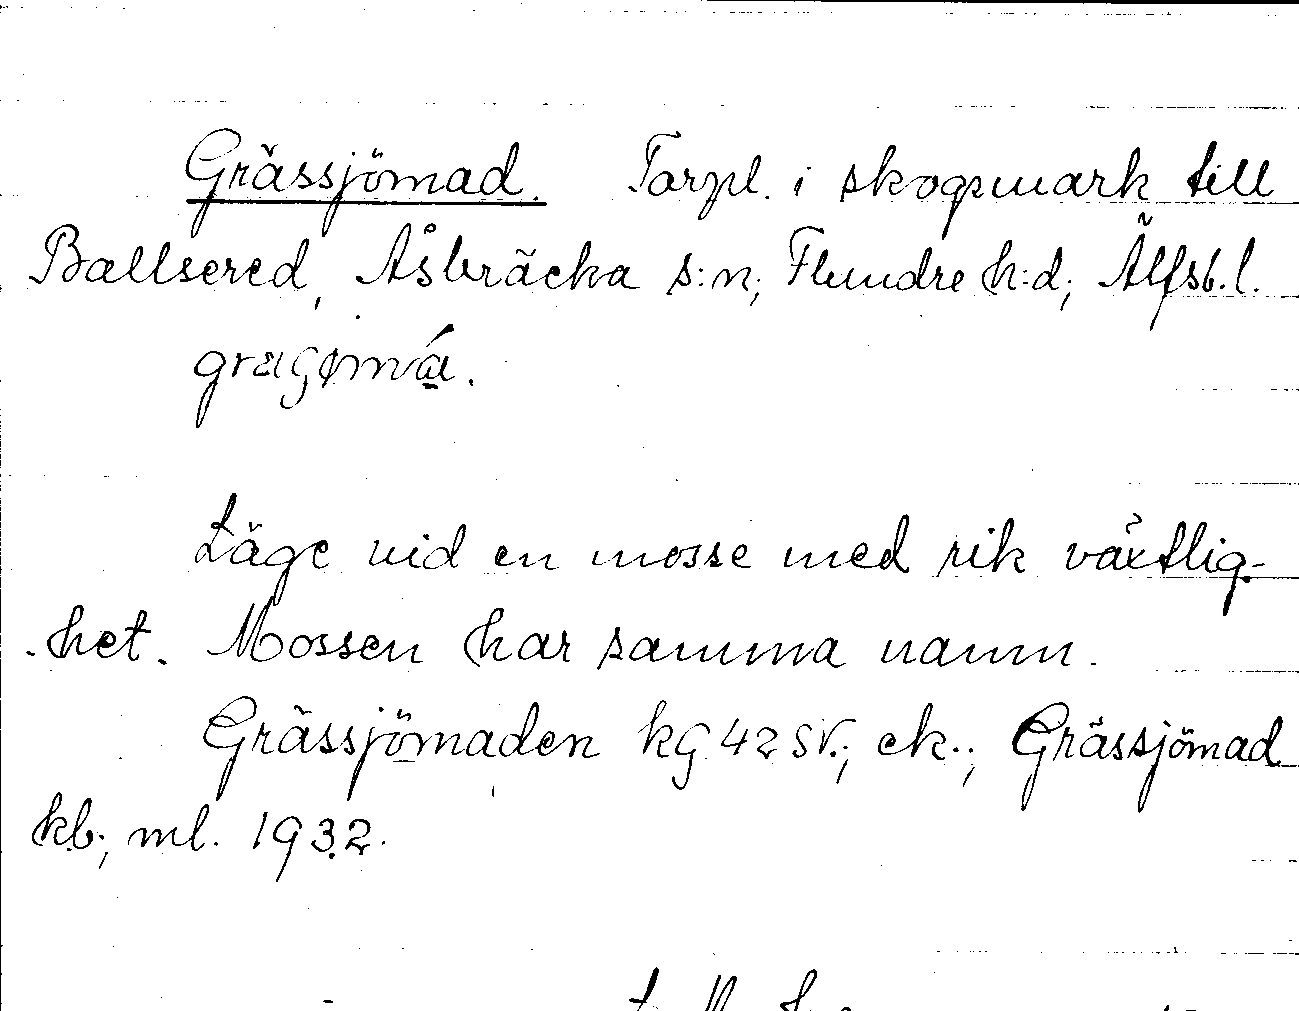 Grässjömad. Torpl. i skogsmark till
Ballsered, Åsbräcka s:n; Flundre h:d; Älfsb. l.
Läge vid en mosse med rik växtlig-
het. Mossen har samma namn.
Grässjömaden kG 42 SV.; ek.; Grässjömad
kb; ml. 1932.